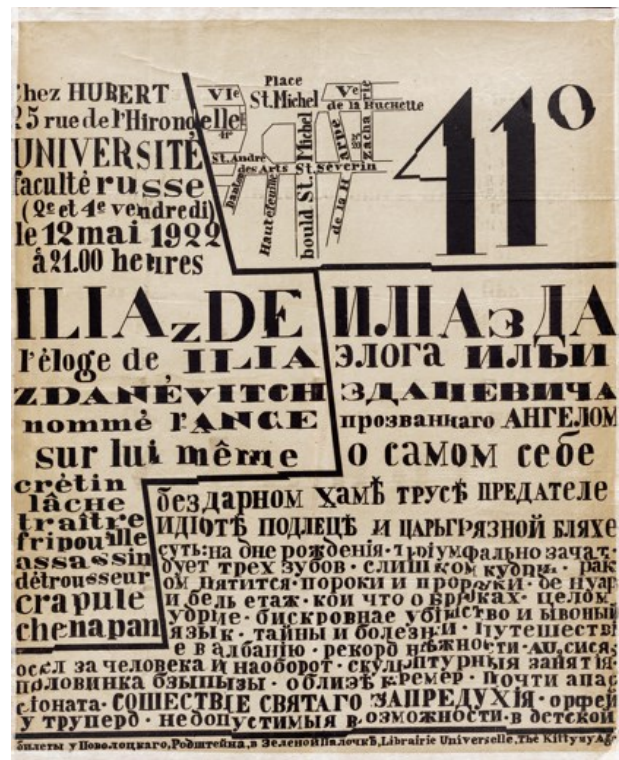 chez HUBERT
25 rue de l'Hirondelle
UNIVERSITÉ
faculté russe
(2e et 4e vendredi)
le 12 mai 1922
à 21.00 heures
Place
St. Michel
VIe
Ve
de la Huchette
zacha
rie
St. André
des Arts
St. Severin
Danton
Hautefeuille
bould St. Michel
de la Harpe
41°
ILIAzDE
l'éloge de ILIA
ZDANÉVITCH
nommé l'ANGE
sur lui même
ИЛIАзДА
элога ИЛЬИ
ЗДАНЕВИЧА
прозваннаго АНГЕЛОМ
о самом себе
crétin
lâche
traître
fripouille
assassin
détrousseur
crapule
chenapan
бездарном хамѣ трусѣ ПРЕДАТЕЛЕ
ИДIОТѢ ПОДЛЕЦѢ И ЦАРЬГРЯЗНОЙ БЛЯХЕ
суть: на дне рожденiя · трiумфально зачат ·
дует трех зубов · слишком кудри · рак
ом пятится · пороки и пророки · бе нуар
и бель етаж · кои что о брюках · целом
удрие · бискровнае убийство и
язык · тайны и болезни · путешестві
е в албанiю · рекорд нѣжности ·
осел за человека и наоборот · скульптурныя занятiя ·
половинка бзыпызы · облизѣ кремер · почти апас
сiоната · СОШЕСТВIЕ СВЯТАГО ЗАПРЕДУХIЯ · орфей
у труперд · недопустимыя возможности · в детской
билеты у Поволоцкаго, Родштейна, в Зеленой Палочкѣ, Librairie Universelle, The Kitty